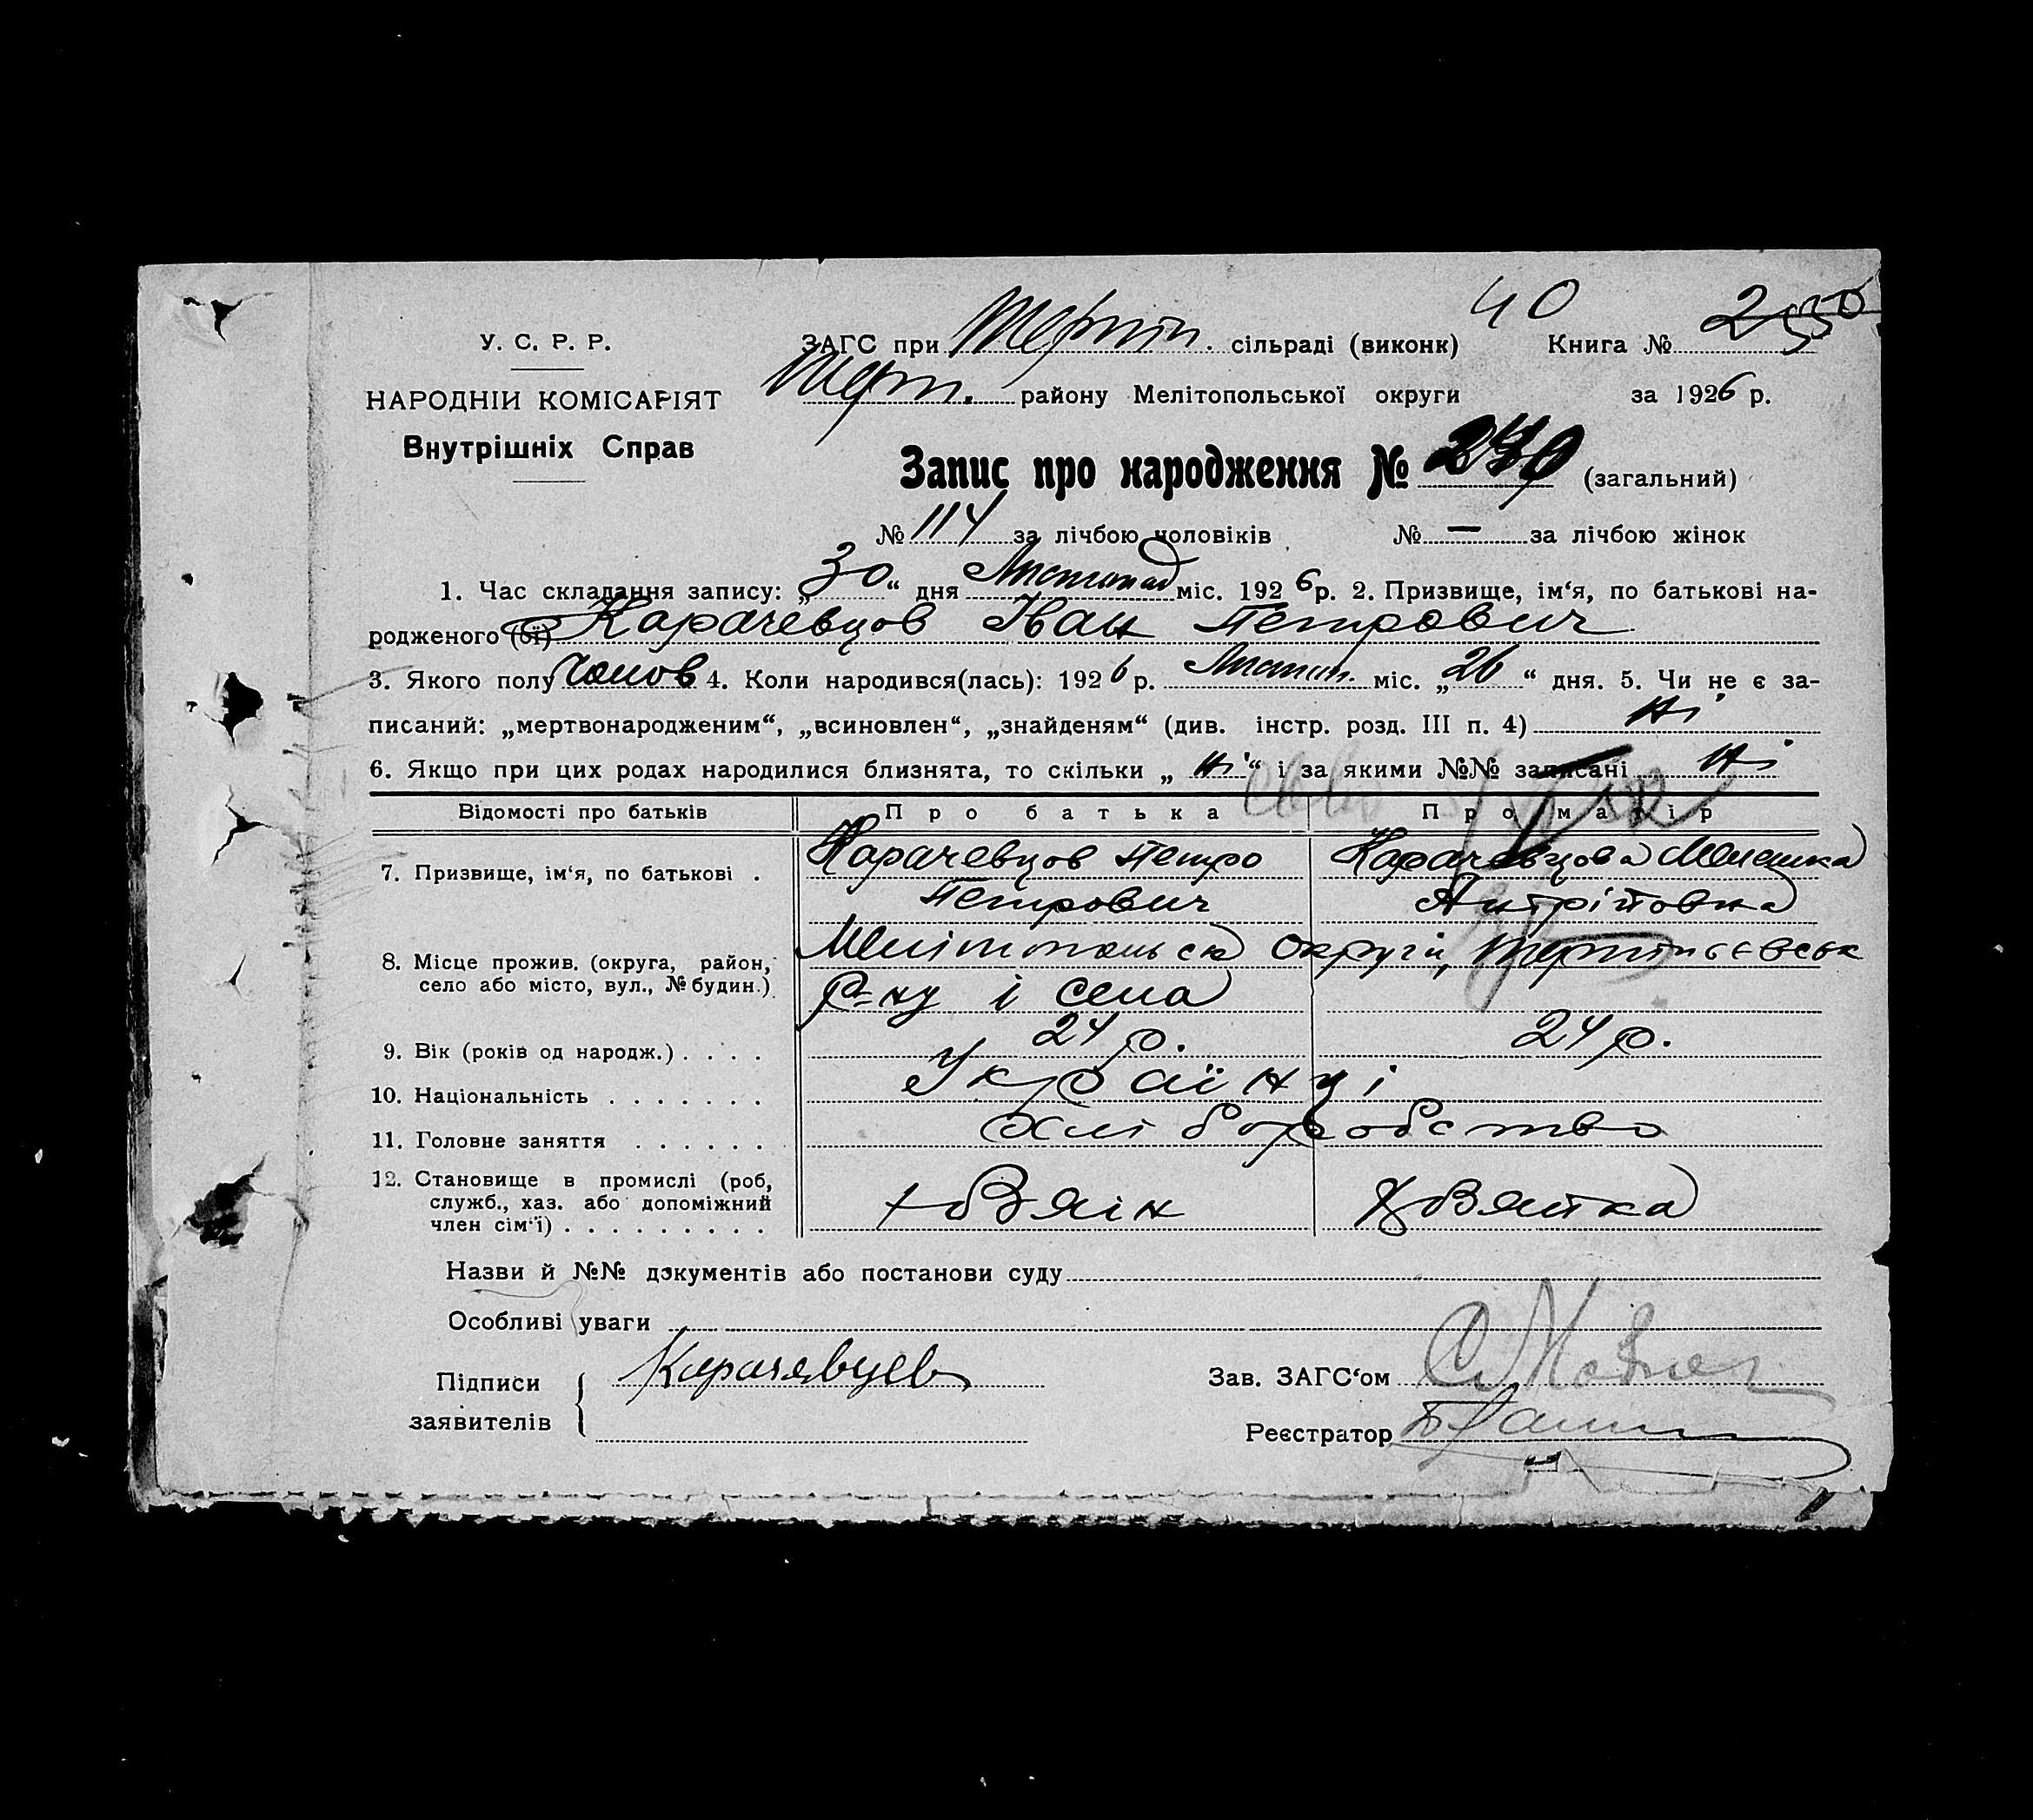 40
У. С. Р. Р.
ЗАГС при Терпін. сільраді (виконк) Книга №
НАРОДНІЙ КОМІСАРІЯТ
Терп. району Мелітопольської округи за 1926 р.
Внутрішніх Справ
Запис про народження № (загальний)
№ 114 за лічбою чоловіків № — за лічбою жінок
1. Час складання запису: „30“ дня Листопад міс. 1926 р. 2. Призвище, ім‘я, по батькові на-
родженого (ої) Карачевцов Іван Петрович
3. Якого полу чолов 4. Коли народився(лась): 1926 р. Листоп. міс. „26“ дня. 5. Чи не є за-
писаний: „мертвонародженим“, „всиновлен“, „знайденям“ (див. інстр. розд. III п. 4) Ні
6. Якщо при цих родах народилися близнята, то скільки „Ні“ і за якими №№ записані Ні
Відомості про батьків Про батька Про матір
7. Призвище, ім‘я, по батькові . Карачевцов Петро Карачевцова
Петрович
8. Місце прожив. (округа, район, Округи,
село або місто, вул., № будин.) Р-ну і села
9. Вік (років од народж.) . . . . 24 р. 24 р.
10. Національність . . . . . . . Українці
11. Головне заняття . . . . . . Хліборобство
12. Становище в промислі (роб,
служб., хаз. або допоміжний хозяін хозяйка
член сім‘ї) . . . . . . . . .
Назви й №№ документів або постанови суду
Особливі уваги
Підписи Карачевцев Зав. ЗАГС‘ом
заявителів
Реєстратор